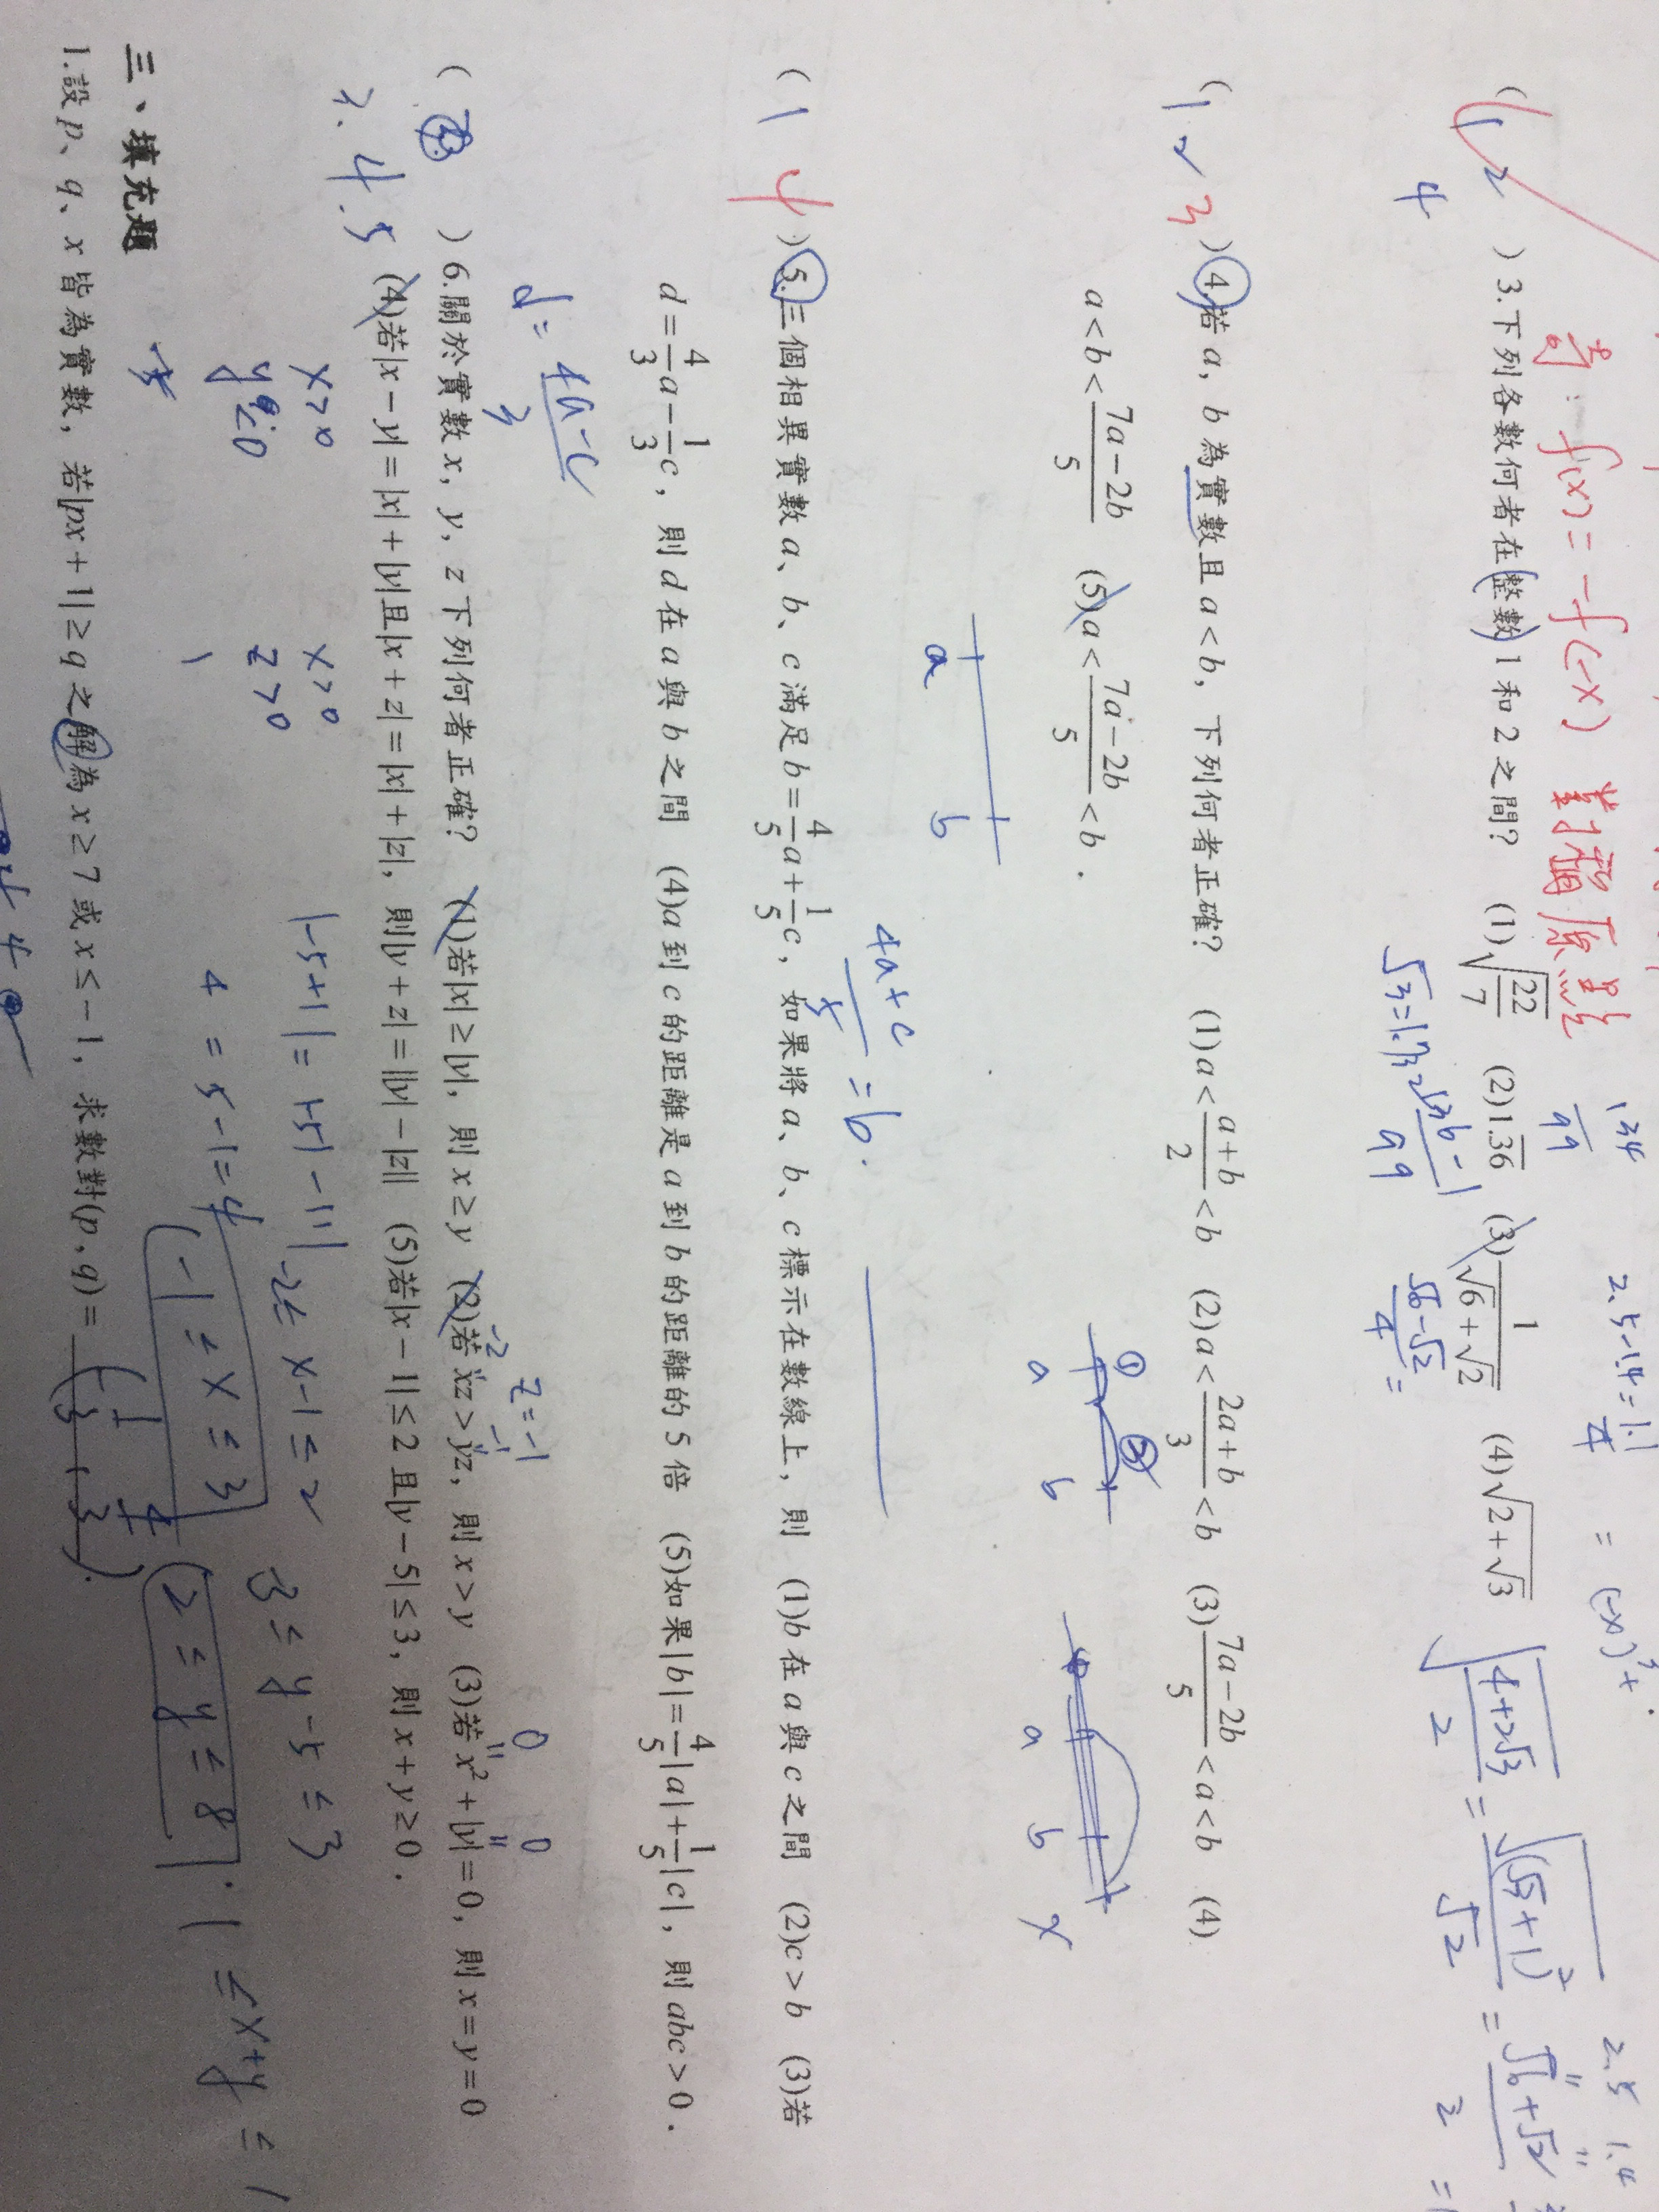 奇: f(x) = -f(-x) 對稱原點
134
99
2.5-1.4=1.1
4
= (-x)³+
2.5 1.4
(1 2 4) 3.下列各數何者在整數1和2之間? (1)√(22/7) (2)1.36̅ (3)1/(√6+√2) (4)√(2+√3)
√3=1.732
136-1
99
(√6-√2)/4 =
√((4+2√3)/2) = √(√3+1)²/√2 = (√6+√2)/2 =
(1 2 3) 4.若a,b為實數且a<b,下列何者正確? (1)a<(a+b)/2<b (2)a<(2a+b)/3<b (3)(7a-2b)/5<a<b (4)
a<b<(7a-2b)/5 (5)a<(7a-2b)/5<b.
① ②
a b
a b x
a b
(4a+c)/5 = b.
(1 4) 5.三個相異實數a、b、c滿足b=4/5a+1/5c,如果將a、b、c標示在數線上,則 (1)b在a與c之間 (2)c>b (3)若
d=4/3a-1/3c,則d在a與b之間 (4)a到c的距離是a到b的距離的5倍 (5)如果|b|=4/5|a|+1/5|c|,則abc>0.
d= (4a-c)/3
z=-1
-2 -1
0 0
(3.4.5) 6.關於實數x,y,z下列何者正確? (1)若|x|≥|y|,則x≥y (2)若xz>yz,則x>y (3)若x²+|y|=0,則x=y=0
(4)若|x-y|=|x|+|y|且|x+z|=|x|+|z|,則|y+z|=||y|-|z|| (5)若|x-1|≤2且|y-5|≤3,則x+y≥0.
x>0
y≤0
x>0
z>0
|-5+1|=|-5|-|1|
4 = 5-1=4
-2≤x-1≤2
-1≤x≤3
-3≤y-5≤3
2≤y≤8
1≤x+y≤1
三、填充題
1.設p、q、x皆為實數,若|px+1|≥q之解為x≥7或x≤-1,求數對(p,q)=